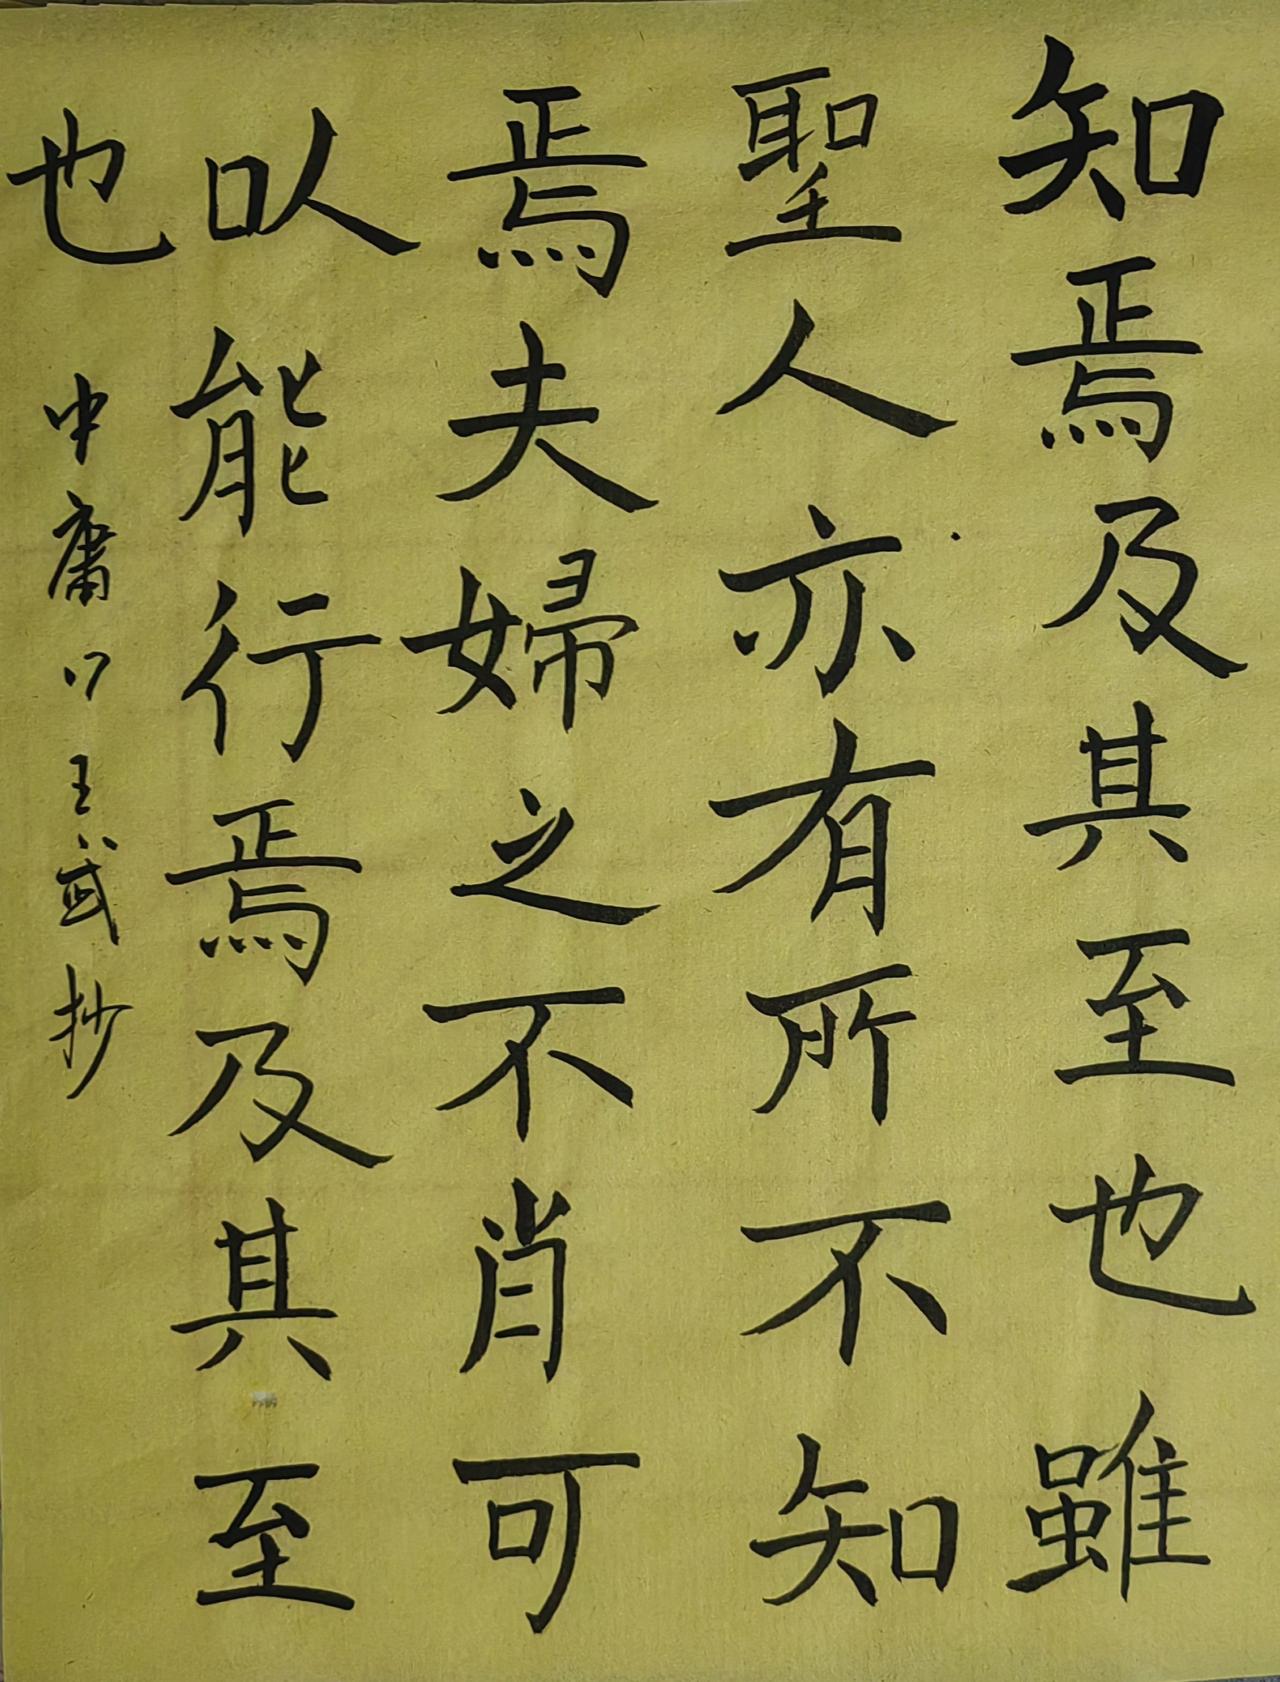 知焉及其至也雖
聖人亦有所不知
焉夫婦之不肖可
以能行焉及其至
也
中庸口王武抄